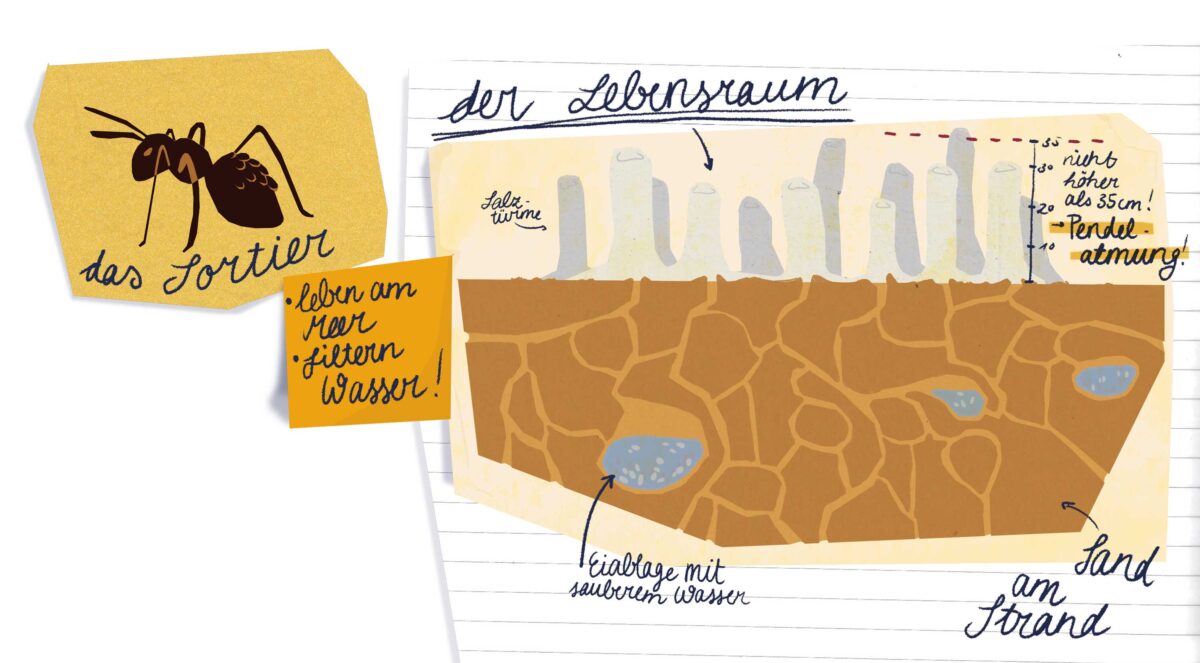 das Sortier
• leben am
Meer
• filtern
Wasser!
der Lebensraum
Salz-
türme
35
30
20
10
nicht
höher
als 35cm!
→ Pendel-
atmung!
Eiablage mit
sauberem Wasser
Sand
am
Strand